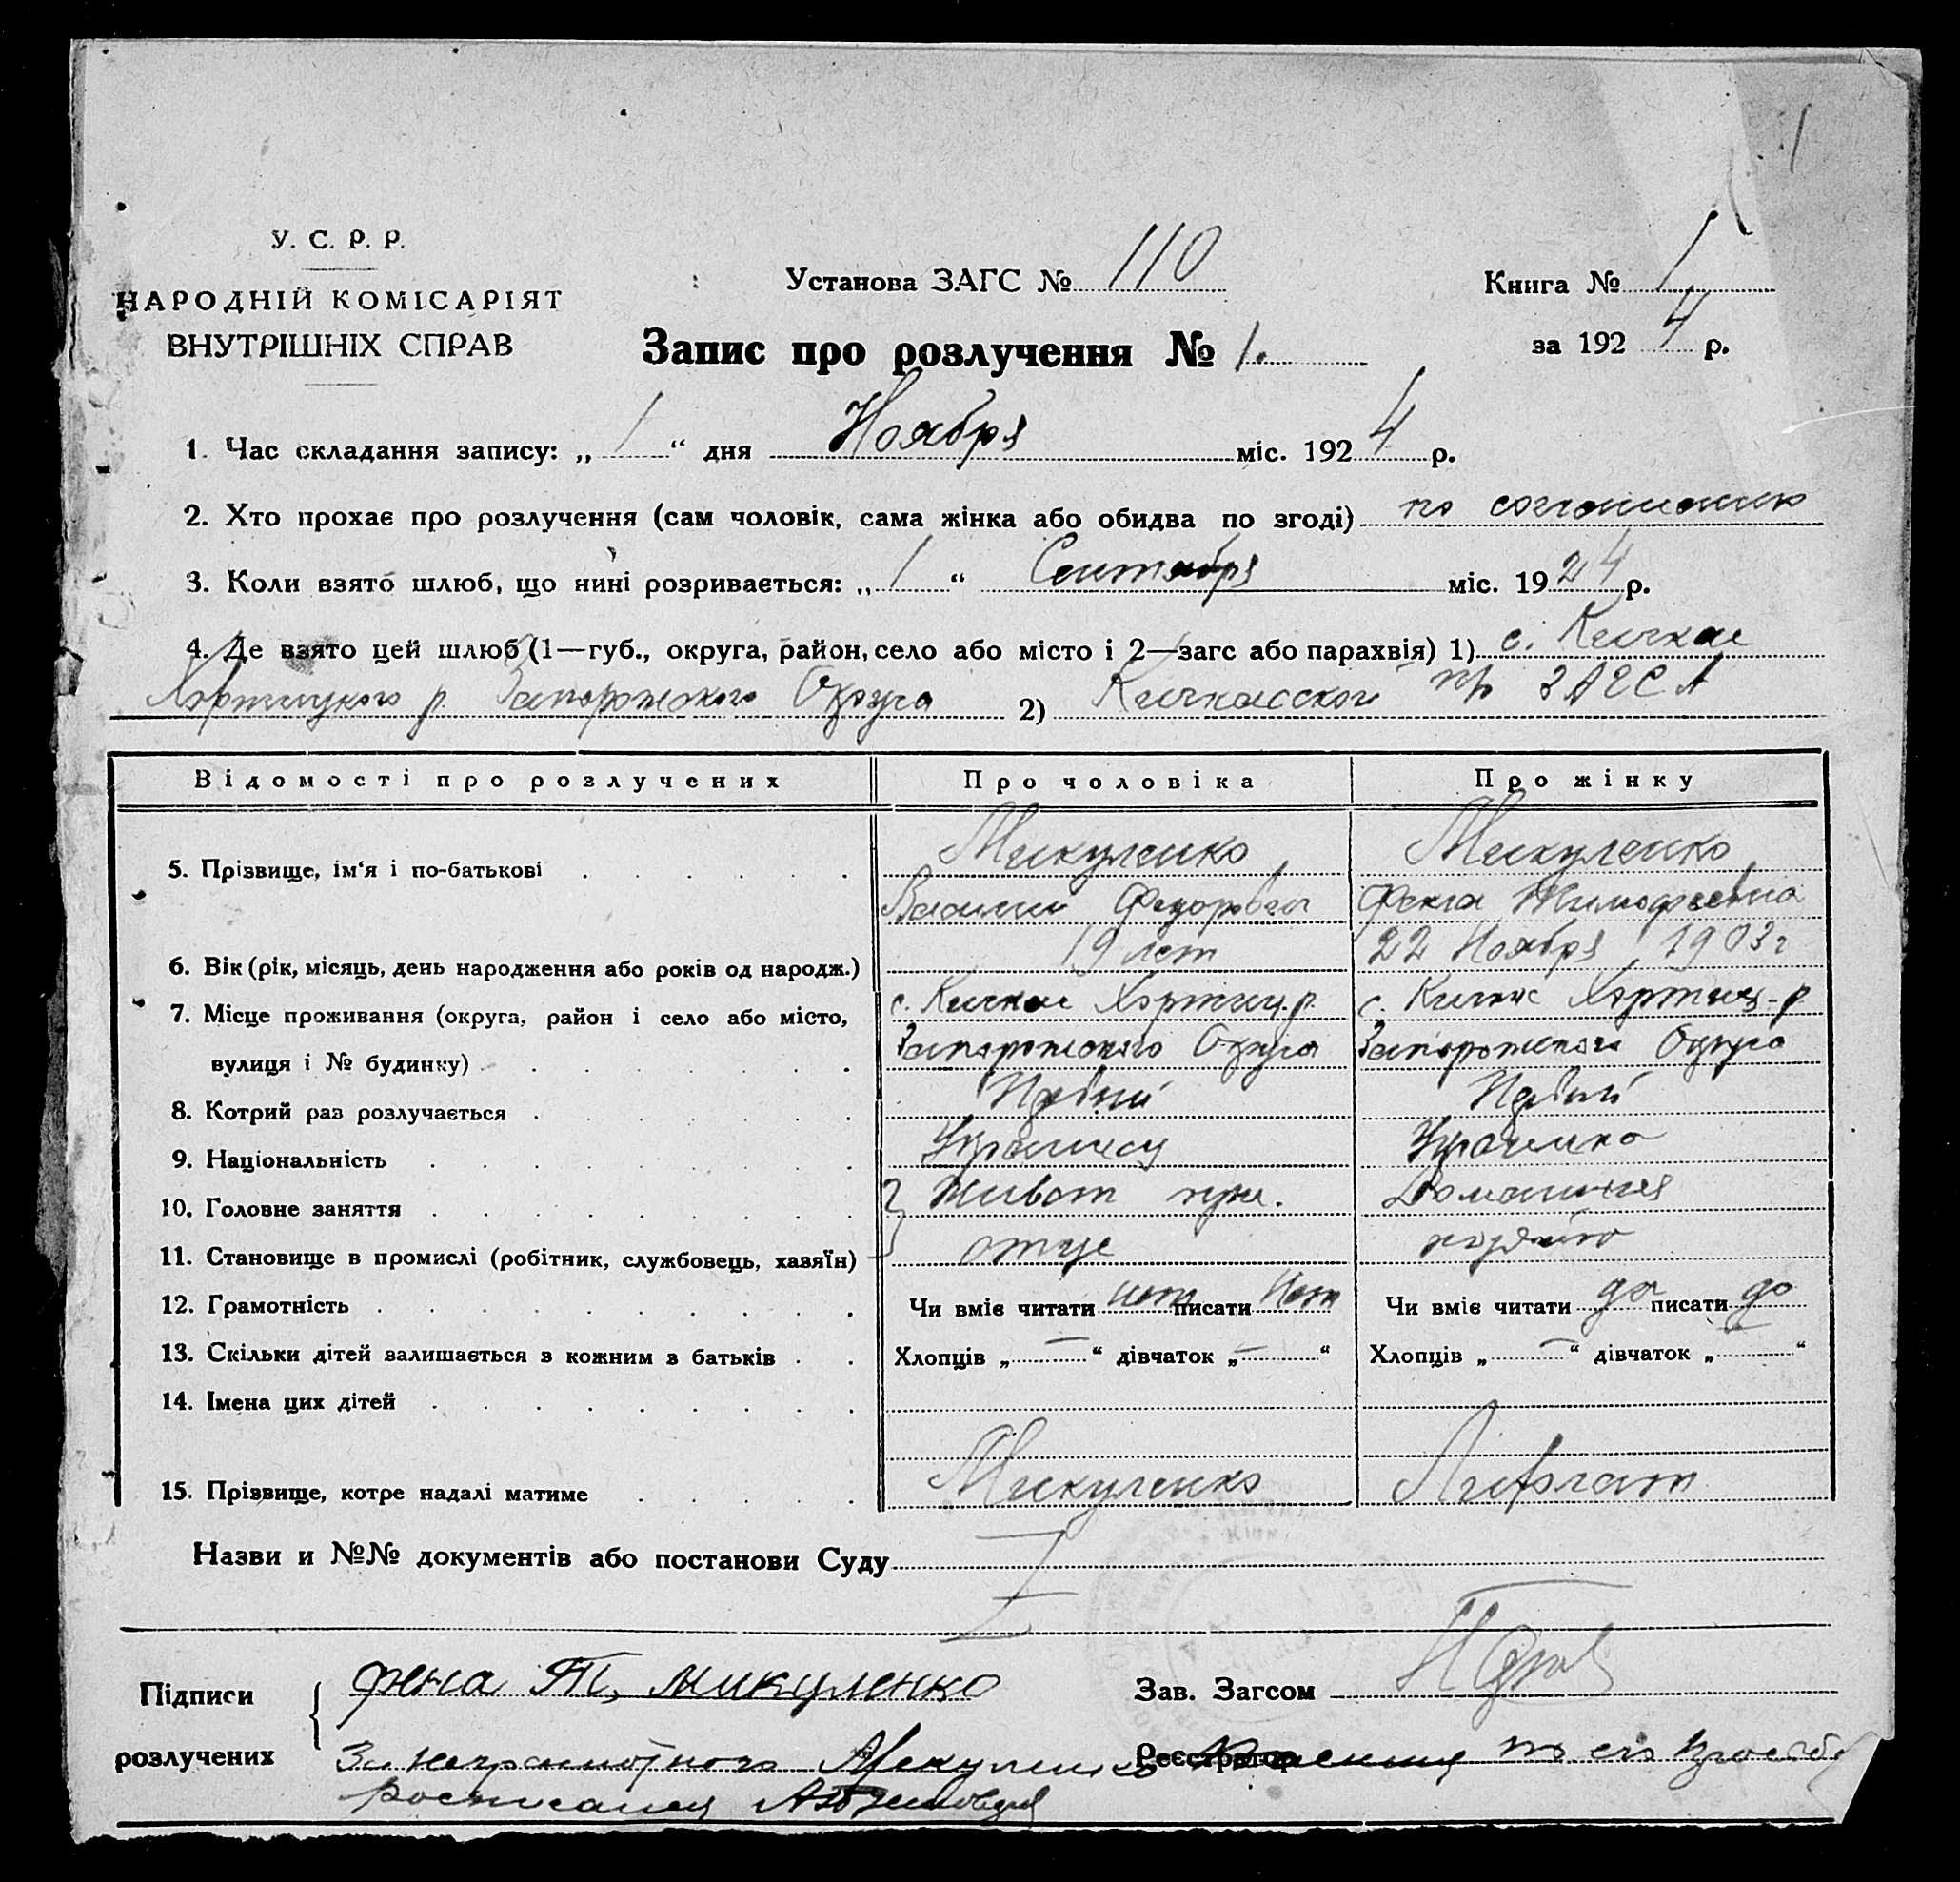 1
У. С. Р. Р.
НАРОДНІЙ КОМІСАРІЯТ
ВНУТРІШНІХ СПРАВ
Установа ЗАГС № 110
Книга № 1
за 192 4 р.
Запис про розлучення № 1.
1. Час складання запису: „ 1 “ дня Ноября міс. 192 4 р.
2. Хто прохає про розлучення (сам чоловік, сама жінка або обидва по згоді) по
3. Коли взято шлюб, що нині розривається: „ 1 “ Сентября міс. 19 24 р.
4. Де взято цей шлюб (1—губ., округа, район, село або місто і 2—загс або парахвія) 1) с. Кичкас
Хортицкого р. Запорожского Округа 2) Кичкасской пр ЗАГСА
Відомості про розлучених Про чоловіка Про жінку
5. Прізвище, ім‘я і по-батькові Микуленко Микуленко
Василий Федорович Фена Тимофеевна
6. Вік (рік, місяць, день народження або років од народж.) 19 лет 22 Ноября 1903 г
7. Місце проживання (округа, район і село або місто, с. Кичкас Хортиц. р. с. Кичкас Хортиц-р
вулиця і № будинку) Запорожского Округа Запорожского Округа
8. Котрий раз розлучається
9. Національність Украинец Украинка
10. Головне заняття Живет при. Домашняя
11. Становище в промислі (робітник, службовець, хазяїн) отце
12. Грамотність Чи вміє читати нет писати нет Чи вміє читати да писати да
13. Скільки дітей залишається з кожним з батьків Хлопців „ — “ дівчаток „ — “ Хлопців „ — “ дівчаток „ — “
14. Імена цих дітей
15. Прізвище, котре надалі матиме Микуленко
Назви и №№ документів або постанови Суду
Підписи фена Т. микуленко Зав. Загсом
розлучених За неграмотного Микуленко Реєстратор
росписался